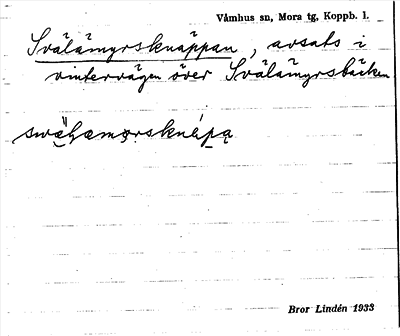 Våmhus sn, Mora tg, Koppb. l.
Svälämyrsknäppan, avsats i
vintervägen över Svälämyrsbäcken
Bror Lindén 1933